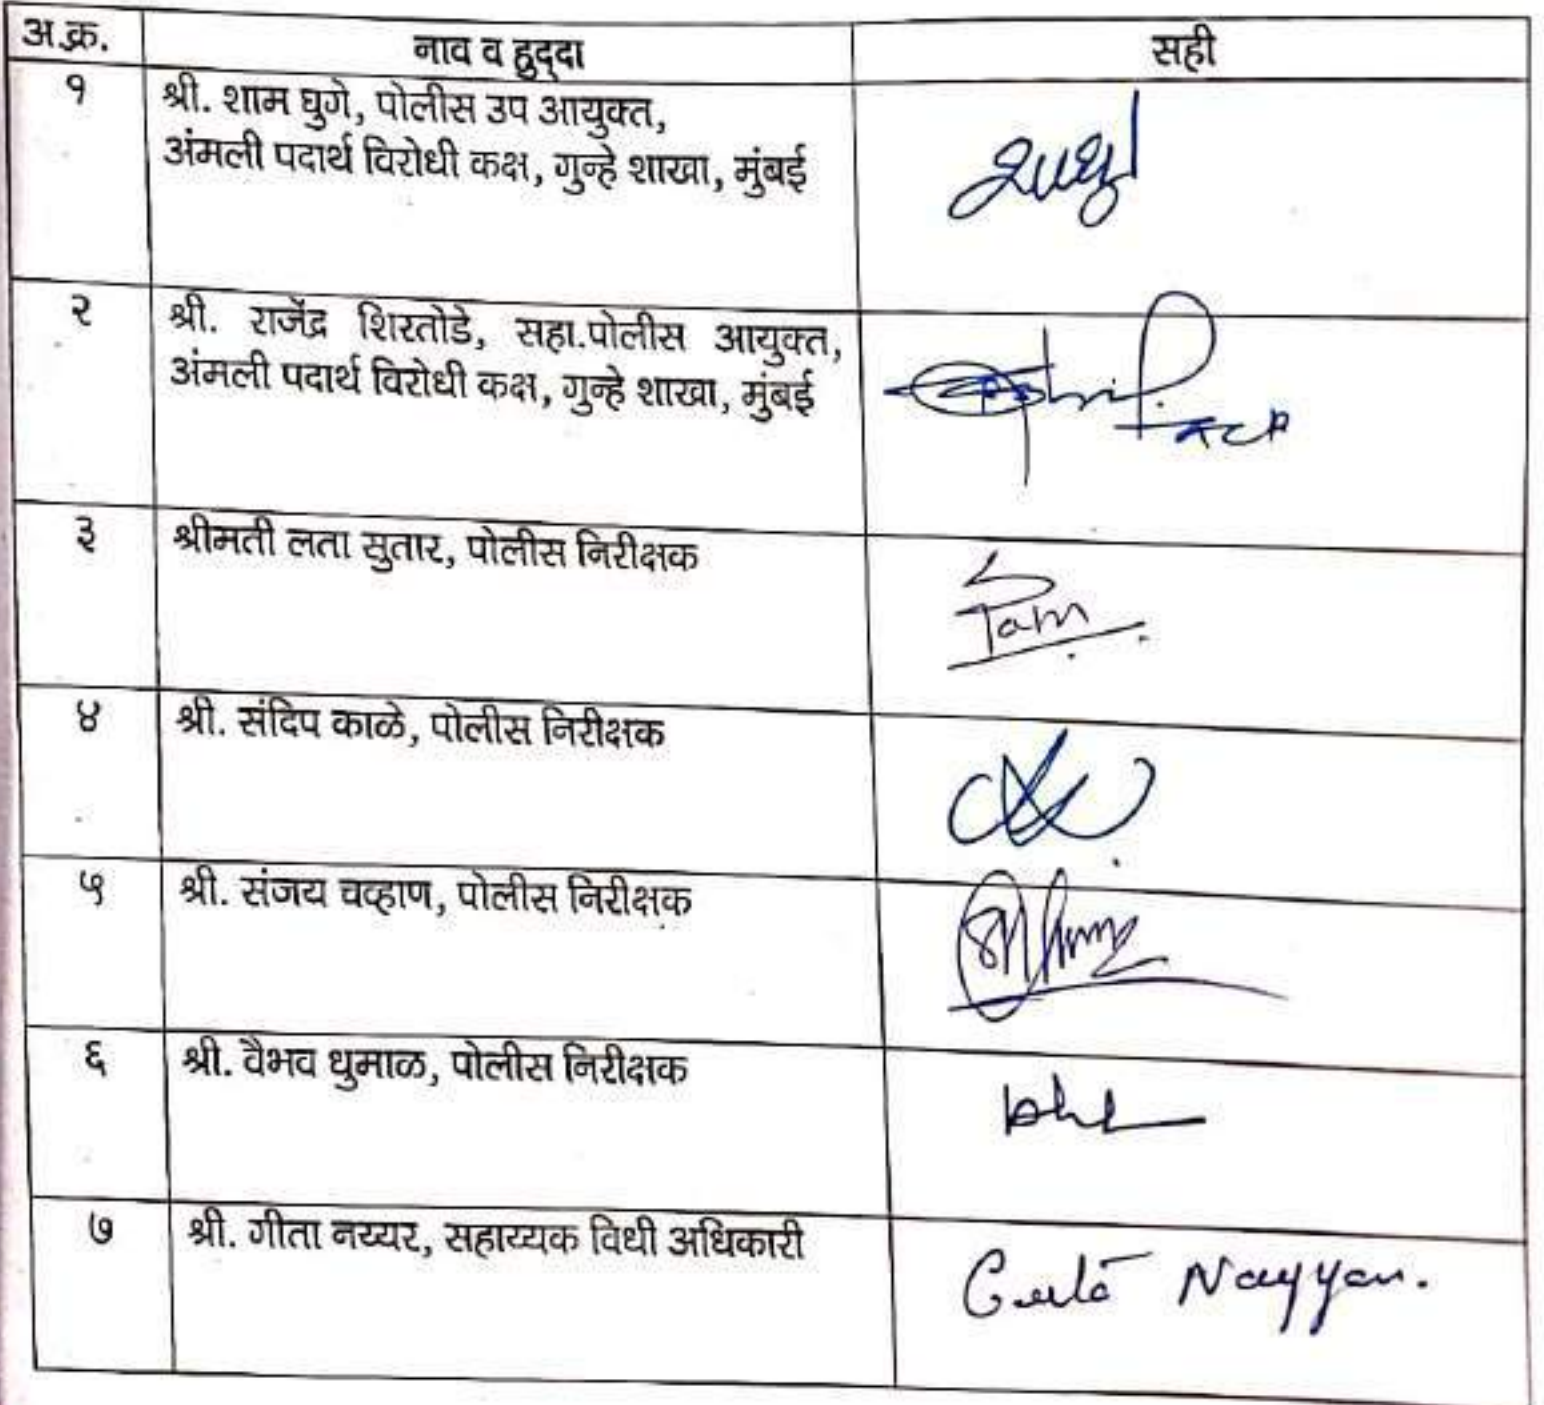 अ.क्र. नाव व हुद्दा सही
१ श्री. शाम घुगे, पोलीस उप आयुक्त,
अंमली पदार्थ विरोधी कक्ष, गुन्हे शाखा, मुंबई
२ श्री. राजेंद्र शिरतोडे, सहा.पोलीस आयुक्त,
अंमली पदार्थ विरोधी कक्ष, गुन्हे शाखा, मुंबई
ACP
३ श्रीमती लता सुतार, पोलीस निरीक्षक
४ श्री. संदिप काळे, पोलीस निरीक्षक
५ श्री. संजय चव्हाण, पोलीस निरीक्षक
६ श्री. वैभव धुमाळ, पोलीस निरीक्षक
७ श्री. गीता नय्यर, सहाय्यक विधी अधिकारी
Geeta Nayyar.